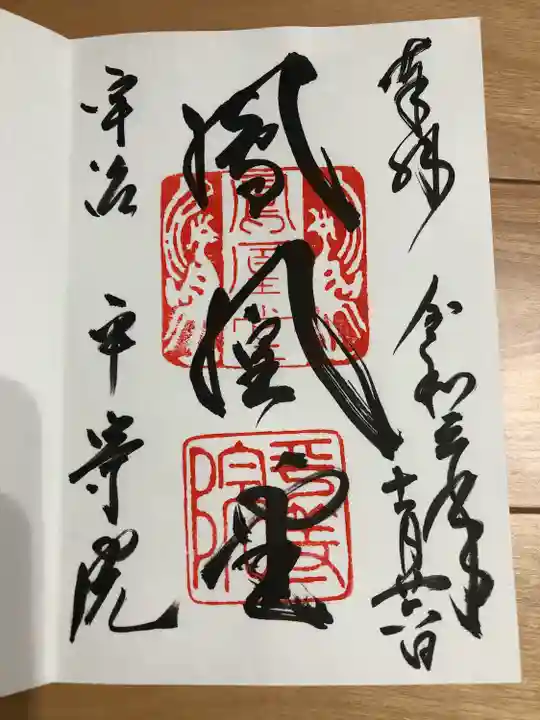 奉拝
令和三年十一月廿六日
鳳凰堂
鳳凰堂
平等院
宇治 平等院